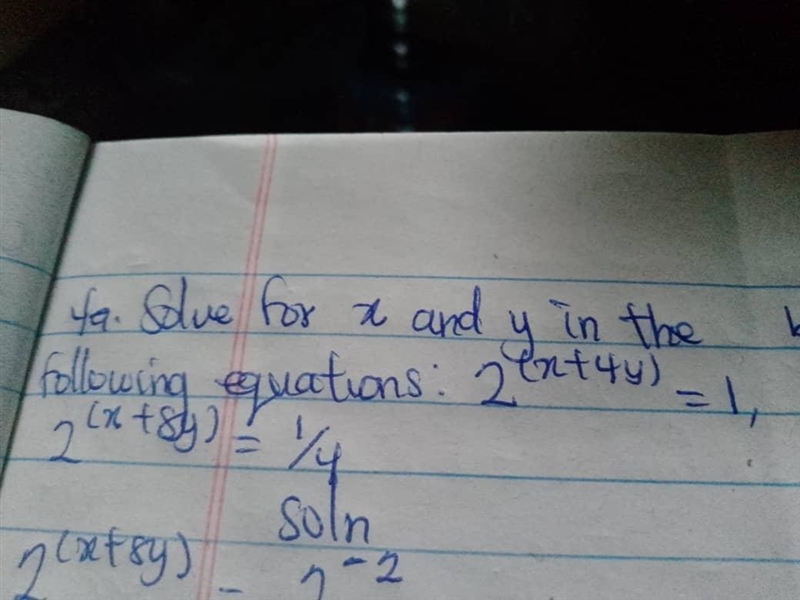 4a. Solve for x and y in the
following equations: 2^(x+4y) = 1,
2^(x+8y) = 1/4
soln
2^(x+8y) = 2^-2